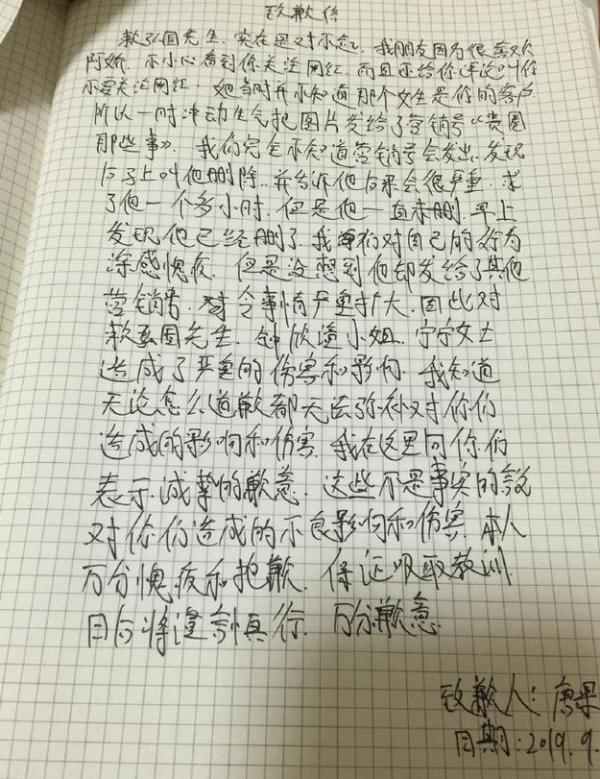 致歉信
赖弘国先生,实在是对不起,我朋友因为很喜欢
阿娇,不小心看到你关注网红,而且还给你评论叫你
不要关注网红,她当时并不知道那个女生是你的客户
所以一时冲动生气把图片发给了营销号《贵圈
那些事》,我们完全不知道营销号会发出,发现
后马上叫他删除,并告诉他后果会很严重,求
了他一个多小时,但是他一直未删,早上
发现他已经删了,我们对自己的行为
深感愧疚,但是没想到他却发给了其他
营销号,令事情严重扩大,因此对
赖弘国先生、钟欣潼小姐、宁宁女士
造成了严重的伤害和影响,我知道
无论怎么道歉都无法弥补对你们
造成的影响和伤害,我在这里向你们
表示诚挚的歉意,这些不是事实的说
对你们造成的不良影响和伤害,本人
万分愧疚和抱歉,保证吸取教训
日后将谨言慎行,万分歉意
致歉人:唐果
日期:2019.9.